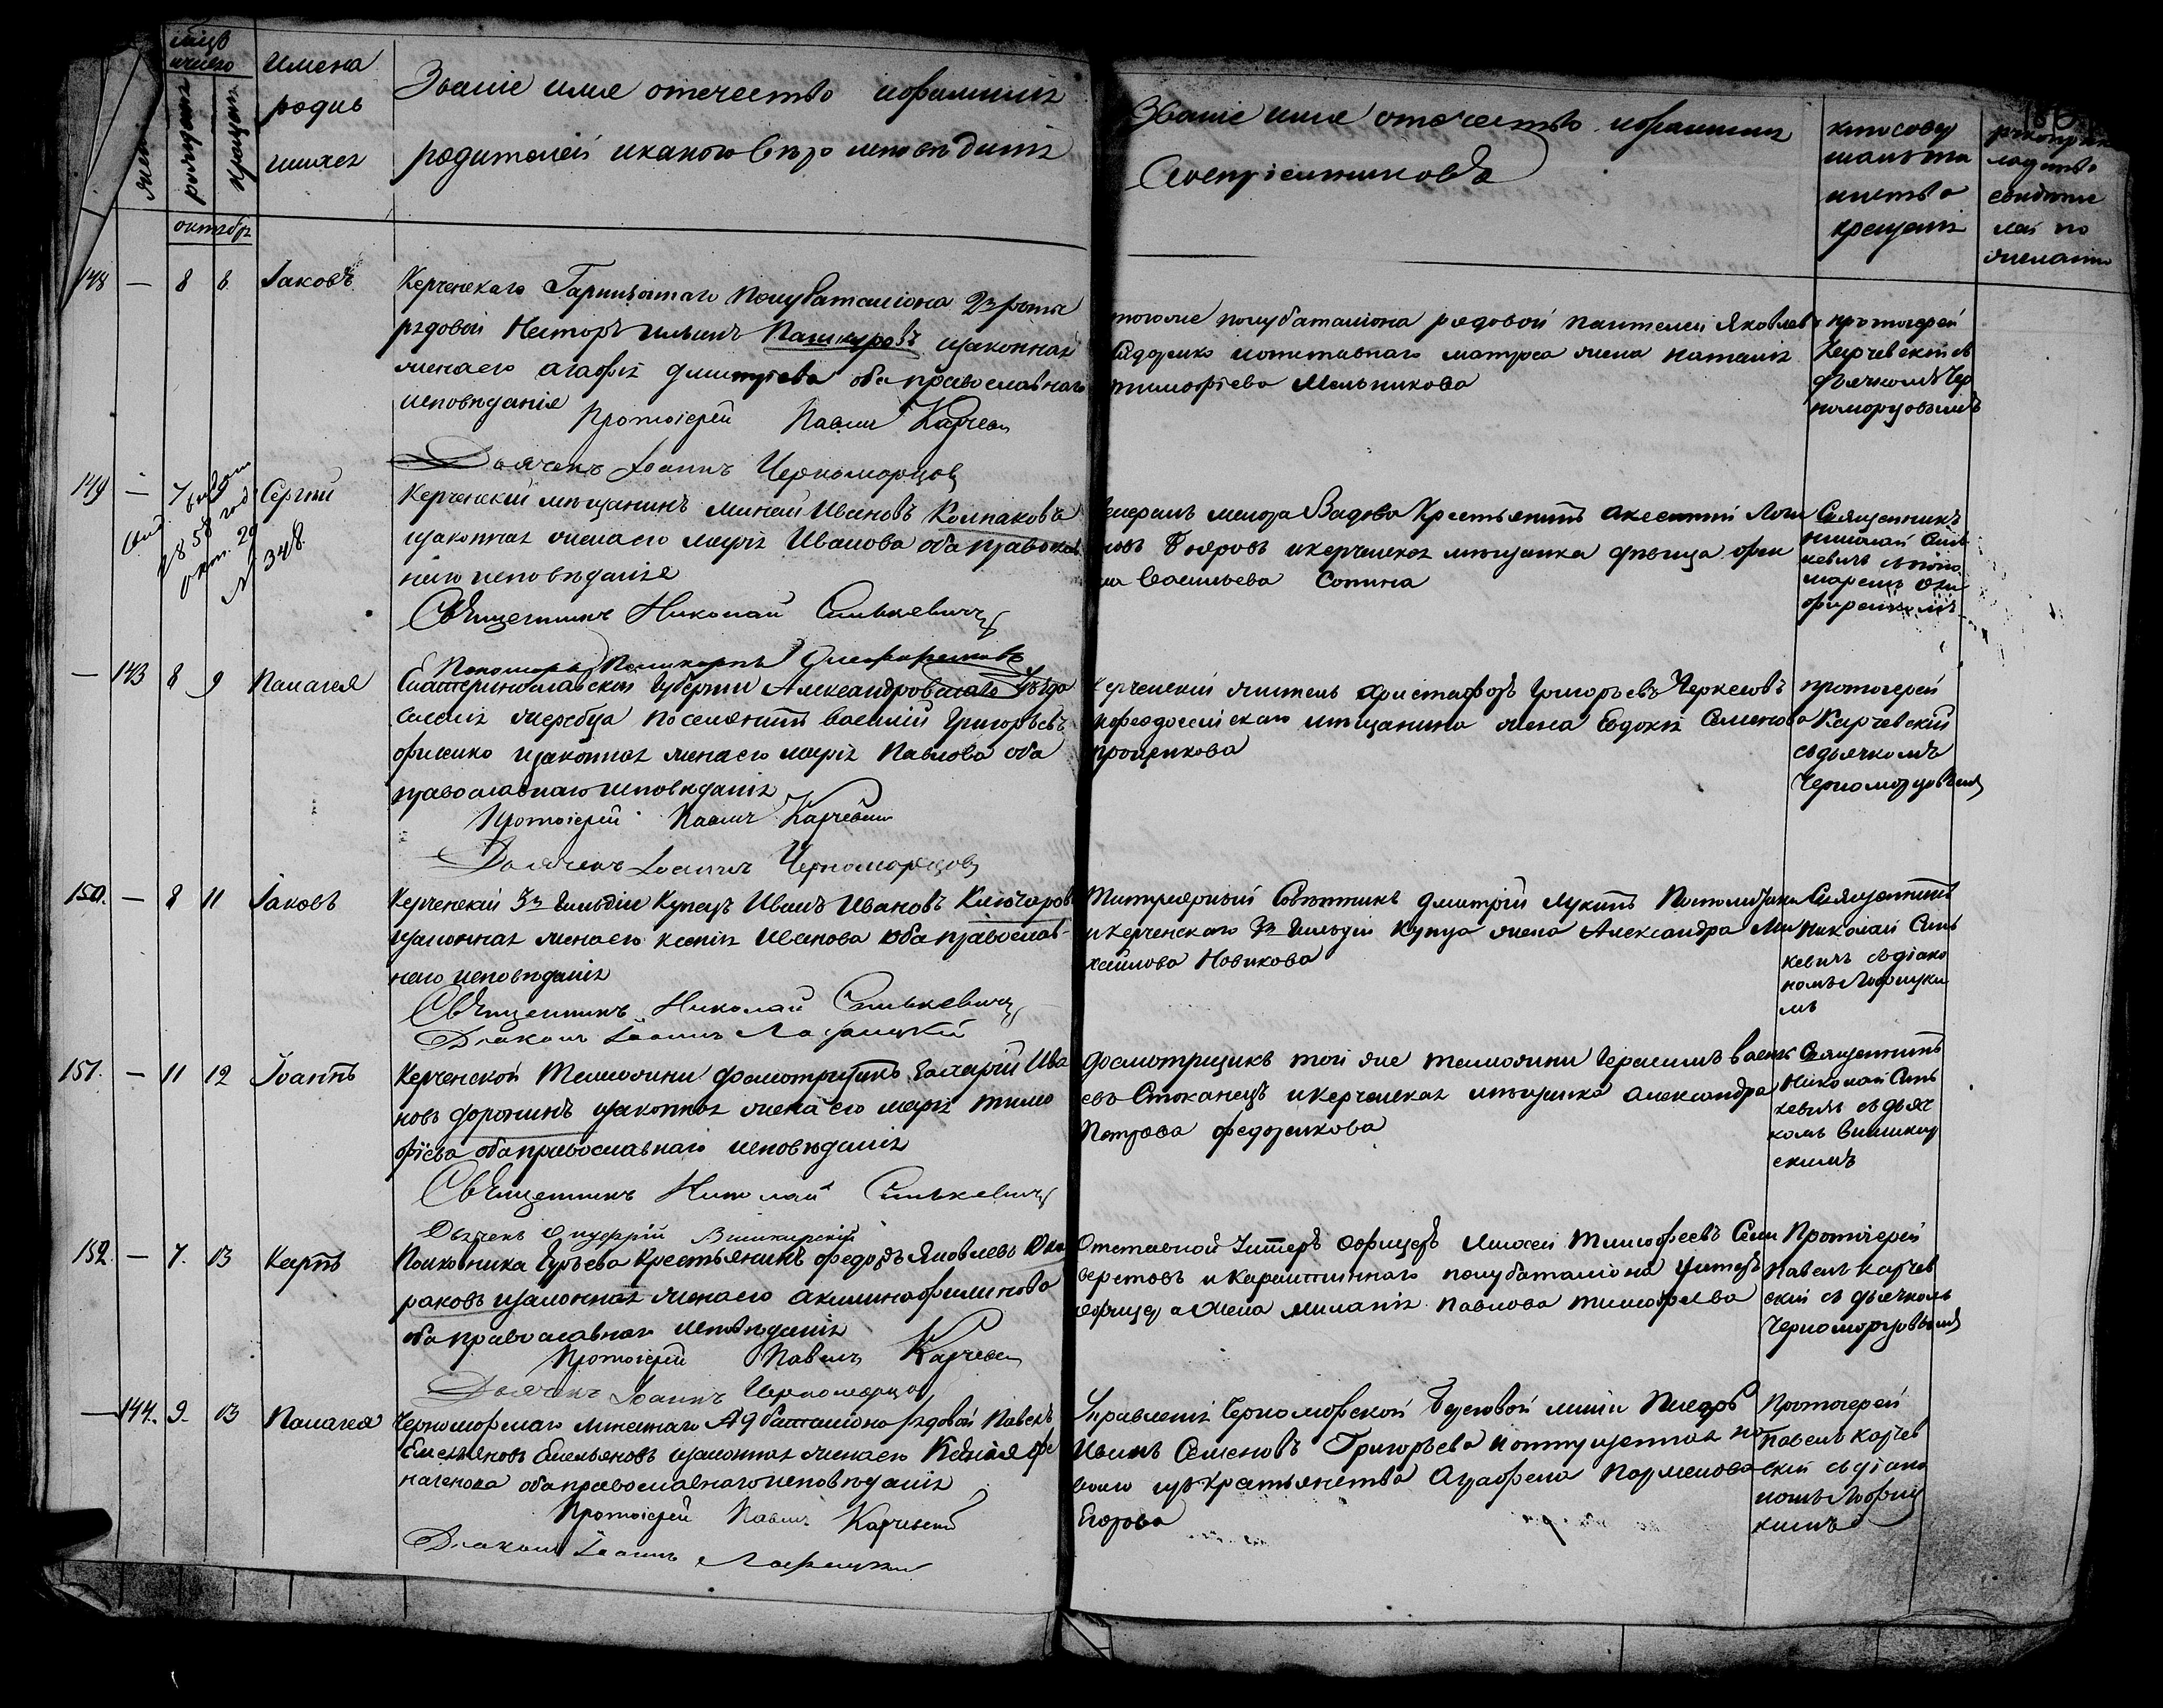 Имена
родив
шихся
Званіе имя отечество ифамилія
родителей икакого веро исповѣданія
Званіе имя отечество ифамилія
Воспріемниковъ
ктосовер
шалъта
инство
крещенія
октябр
148 — 8 8 Іаковъ
Керченскаго Гарнизоннаго Полубаталіона 2й роты
рядовой Несторъ Ильинъ изаконная
женаего агафія дмитріева оба православнаго
исповѣданія
Протоіерей Павелъ Карчевск
Дьячекъ Іоаннъ Черноморцов
тогоже полубаталіона рядовой пантелей Яковлев
Сидоренко иотставнаго матроса жена наталія
тимофіева Мельникова
протоіерей
Карчевскій съ
дьячкомъ Чер
номорцовымъ
149 — 7 Сергій
1858 год
окт. 29
№ 348.
Керченскій мѣщанинъ минай Ивановъ Колпаковъ
изаконная женаего марія Иванова оба православ
наго исповѣданія
Священникъ Николай Синькевичъ
Пономарь Поликарпъ
Крестьянинъ
Бояровъ икерченская мѣщанка дѣвица
Васильева Сопина
Священникъ
николай Синь
кевичъ съ поно
маремъ
— 143 8 9 Пелагея
Екатеринославской Губерніи Александровскаго Уѣзда
Селенія жеребца Поселянинъ Василій Григорьевъ
фисенко изаконная женаего марія Павлова оба
православнаго исповѣданія
Протоіерей Павелъ Карчевскій
Дьячекъ Іоаннъ Черноморцовъ
Керченскій житель христофоръ Григорьевъ Черкесовъ
ифеодосійскаго мѣщанина жена Евдокія Семенова
проценкова
протоіерей
Карчевскій
съдьячкомъ
Черноморцовымъ
150. — 8 11 Іаковъ
Керченскій 3й Гильдіи Купецъ Иванъ Ивановъ Ключаровъ
изаконная женаего ксенія Иванова оба православ-
наго исповѣданія
Священникъ Николай Синькевичъ
Діаконъ Іоаннъ Лафицкій
Титулярный Совѣтникъ дмитрій лукинъ
икерченскаго 3й Гильдіи Купца жена Александра Ми
хайлова Новикова
Священникъ
Николай Синь
кевичъ съдіако
номъ Лофицки
мъ
151. — 11 12 Іоаннъ
Керченской Таможни досмотрщикъ Захарій Ива
новъ доронинъ изаконная жена его марія тимо
фіева оба православнаго исповѣданія
Священникъ Николай Синькевичъ
Дьячекъ Онуфрій
досмотрщикъ той же таможни Герасимъ Васил
евъ Стоканецъ икерченская мѣщанка александра
Петрова федоренкова
Священникъ
Николай Синь
кевичъ съ дьяч
комъ
скимъ
152. — 7. 13 Карпъ
Полковника Гурьева Крестьянинъ федоръ Яковлевъ
раковъ изаконная женаего акилина филипова
оба православнаго исповѣданія
Протоіерей Павелъ Карчевск
Дьячекъ Іоаннъ Черноморцов
Отставной Унтеръ офицеръ Тимофеевъ Сели
верстовъ и Карантиннаго полубаталіона унтеръ
офицера жена миланія Павлова тимофѣева
Протоіерей
Павелъ Карчев
скій съ дьячкомъ
Черноморцовымъ
— 144. 9. 13 Пелагея
Черноморскаго линейнаго баталіона рядовой Павелъ
Емельяновъ Емельяновъ изаконная женаего
оба православнаго исповѣданія
Протоіерей Павелъ Карчевскій
Діаконъ Іоаннъ Лафицкій
Управленія Черноморской береговой линіи Писарь
Иванъ Семеновъ Григорьева иотпущенная на
волю изъ крестьянства Агафена Парменова
Егорова
Протоіерей
Павелъ Карчев
скій съ діако
номъ Лофиц
кимъ